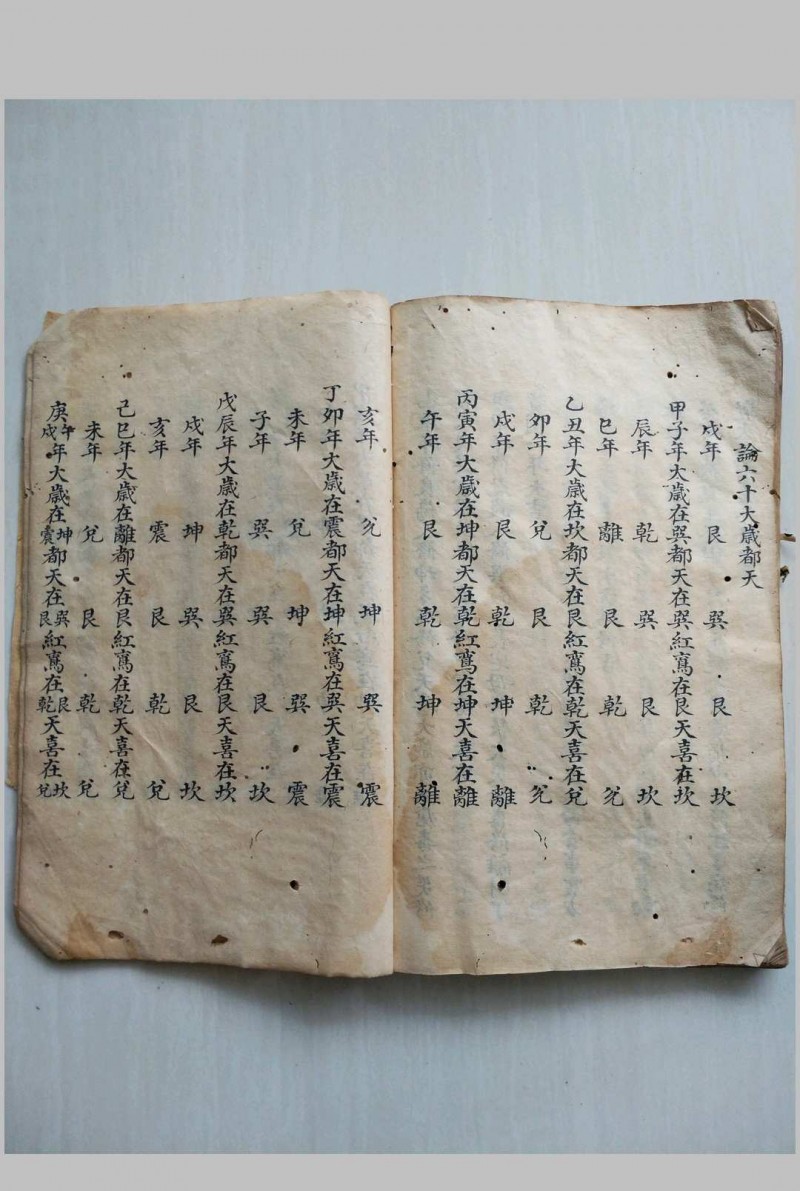 論六十大歲都天
戍年 艮 巽 艮 坎
甲子年大歲在巽都天在巽紅鸾在艮天喜在坎
辰年 乾 巽 艮 坎
巳年 離 艮 乾 兊
乙丑年大歲在坎都天在艮紅鸾在乾天喜在兌
卯年 兌 艮 乾 兊
戍年 艮 乾 坤 離
丙寅年大歲在坤都天在乾紅鸾在坤天喜在離
午年 艮 乾 坤 離
亥年 兊 坤 巽 震
丁卯年大歲在震都天在坤紅鸾在巽天喜在震
未年 兌 坤 巽 震
子年 巽 巽 艮 坎
戊辰年大歲在乾都天在巽紅鸾在艮天喜在坎
戍年 坤 巽 艮 坎
亥年 震 艮 乾 兌
己巳年大歲在離都天在艮紅鸾在乾天喜在兌
未年 兌 艮 乾 兌
庚午戍年大歲在坤震都天在巽艮紅鸾在艮乾天喜在坎兌